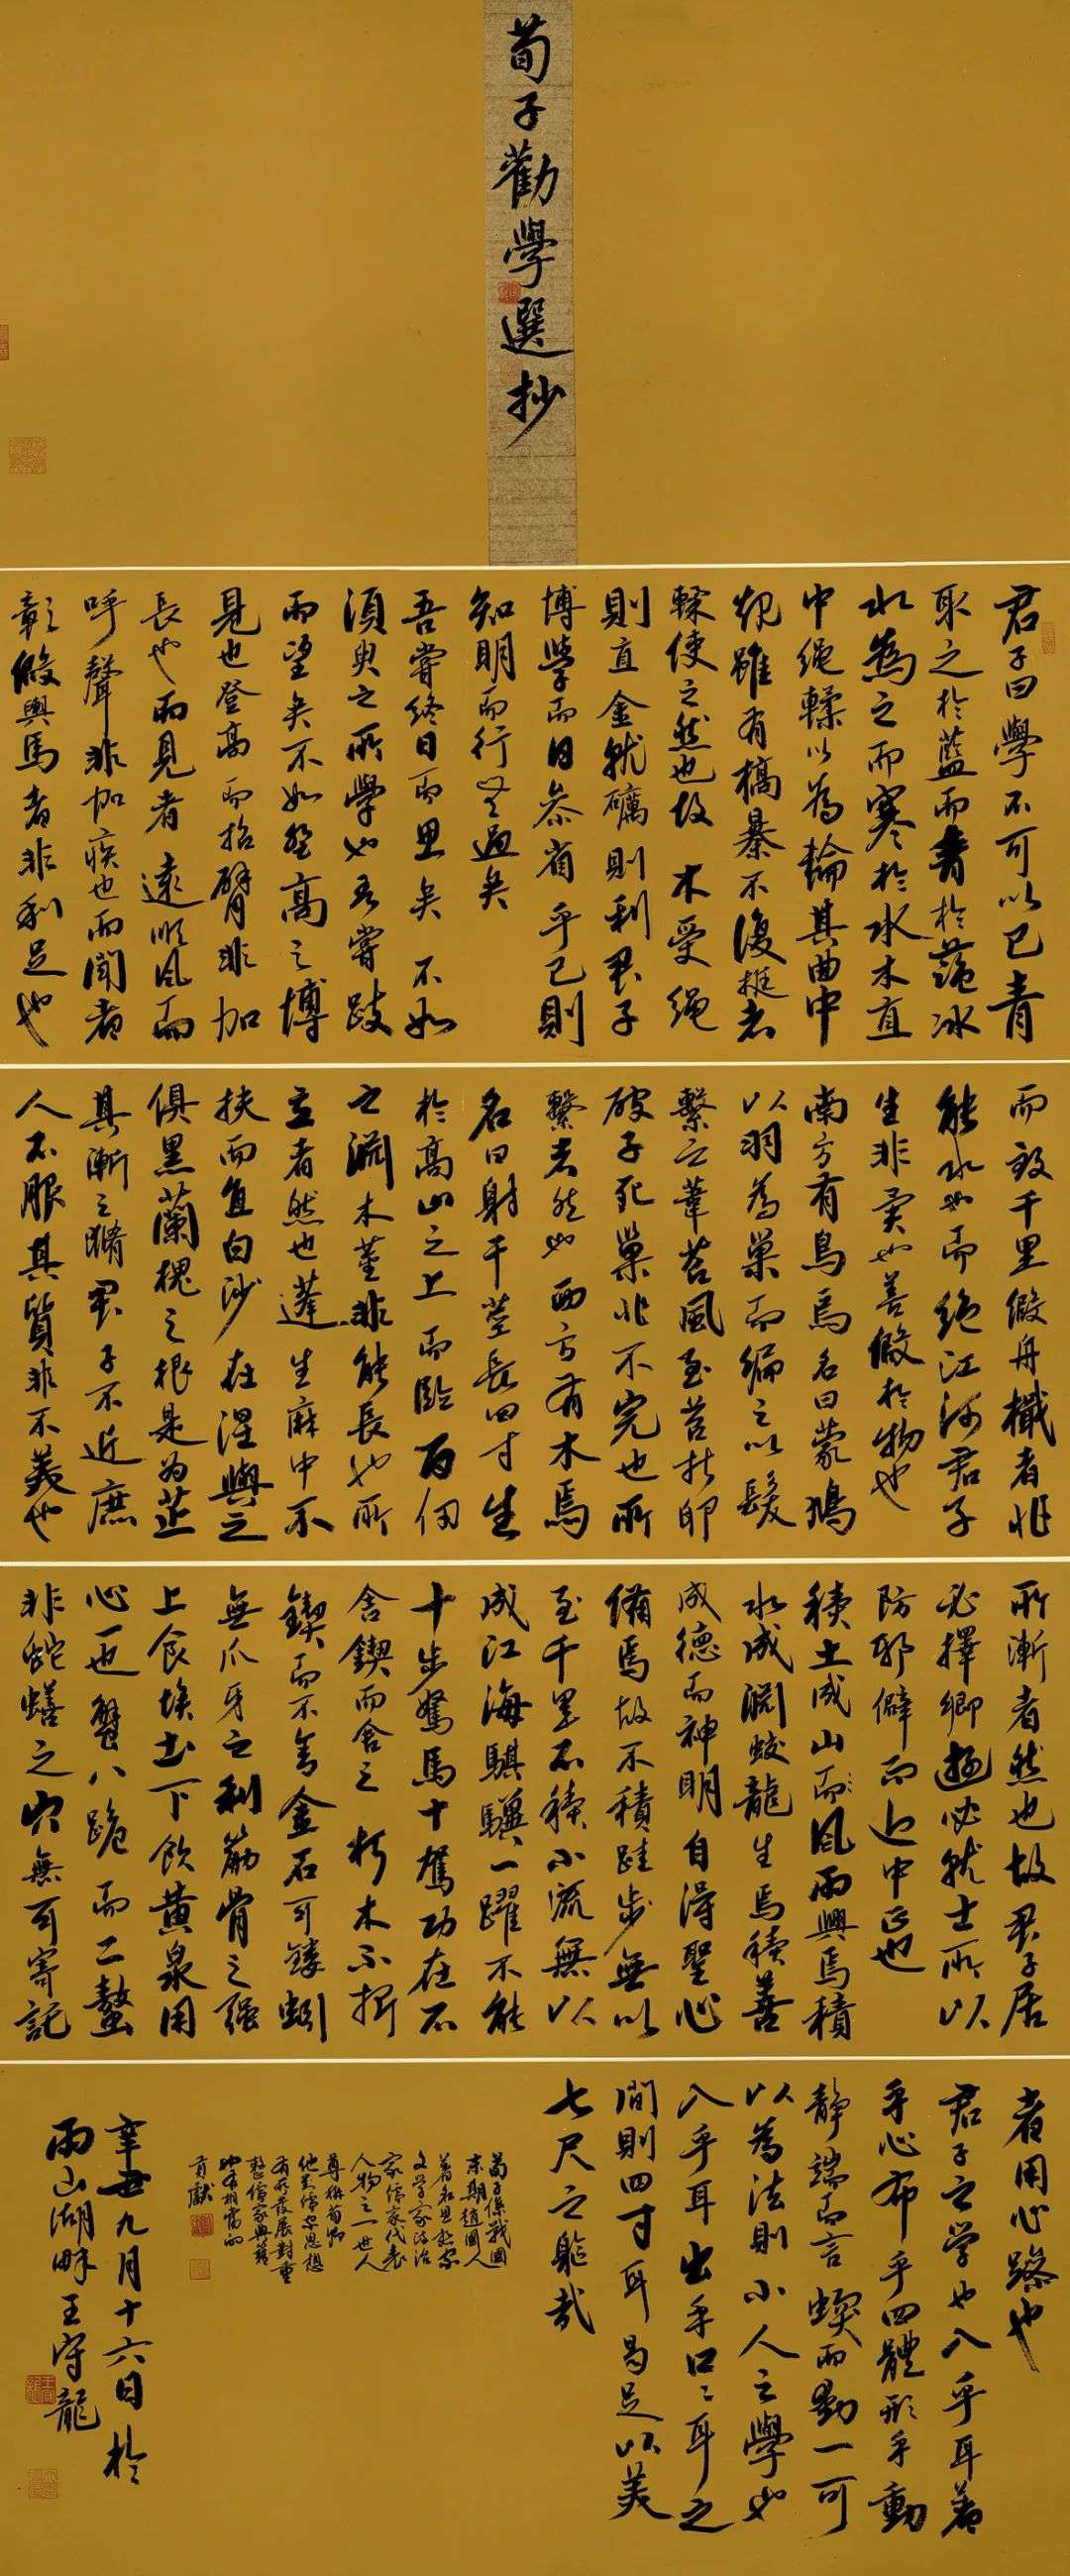 荀子勸學選抄
君子曰學不可以已青
取之於藍而青於藍冰
水為之而寒於水木直
中繩輮以為輪其曲中
規雖有槁暴不復挺者
輮使之然也故木受繩
則直金就礪則利君子
博學而日參省乎己則
知明而行無過矣
吾嘗終日而思矣不如
須臾之所學也吾嘗跂
而望矣不如登高之博
見也登高而招臂非加
長也而見者遠順風而
呼聲非加疾也而聞者
彰假輿馬者非利足也
而致千里假舟檝者非
能水也而絕江河君子
生非異也善假於物也
南方有鳥焉名曰蒙鳩
以羽為巢而編之以髮
繫之葦苕風至苕折卵
破子死巢非不完也所
繫者然也西方有木焉
名曰射干莖長四寸生
於高山之上而臨百仞
之淵木莖非能長也所
立者然也蓬生麻中不
扶而直白沙在涅與之
俱黑蘭槐之根是為芷
其漸之滫君子不近庶
人不服其質非不美也
所漸者然也故君子居
必擇鄉遊必就士所以
防邪僻而近中正也
積土成山而風雨興焉積
水成淵蛟龍生焉積善
成德而神明自得聖心
備焉故不積跬步無以
至千里不積小流無以
成江海騏驥一躍不能
十步駑馬十駕功在不
舍鍥而舍之朽木不折
鍥而不舍金石可鏤蚓
無爪牙之利筋骨之強
上食埃土下飲黃泉用
心一也蟹八跪而二螯
非蛇蟺之穴無可寄託
者用心躁也
君子之學也入乎耳著
乎心布乎四體形乎動
靜端而言蝡而動一可
以為法則小人之學也
入乎耳出乎口口耳之
間則四寸耳曷足以美
七尺之軀哉
荀子係戰國
末期趙國人
著名思想家
文學家政治
家儒家代表
人物之一世人
尊稱荀卿
他對儒家思想
有所發展對重
整儒家典籍
也有相當的
貢獻
辛丑九月十六日於
雨山湖畔王守龍